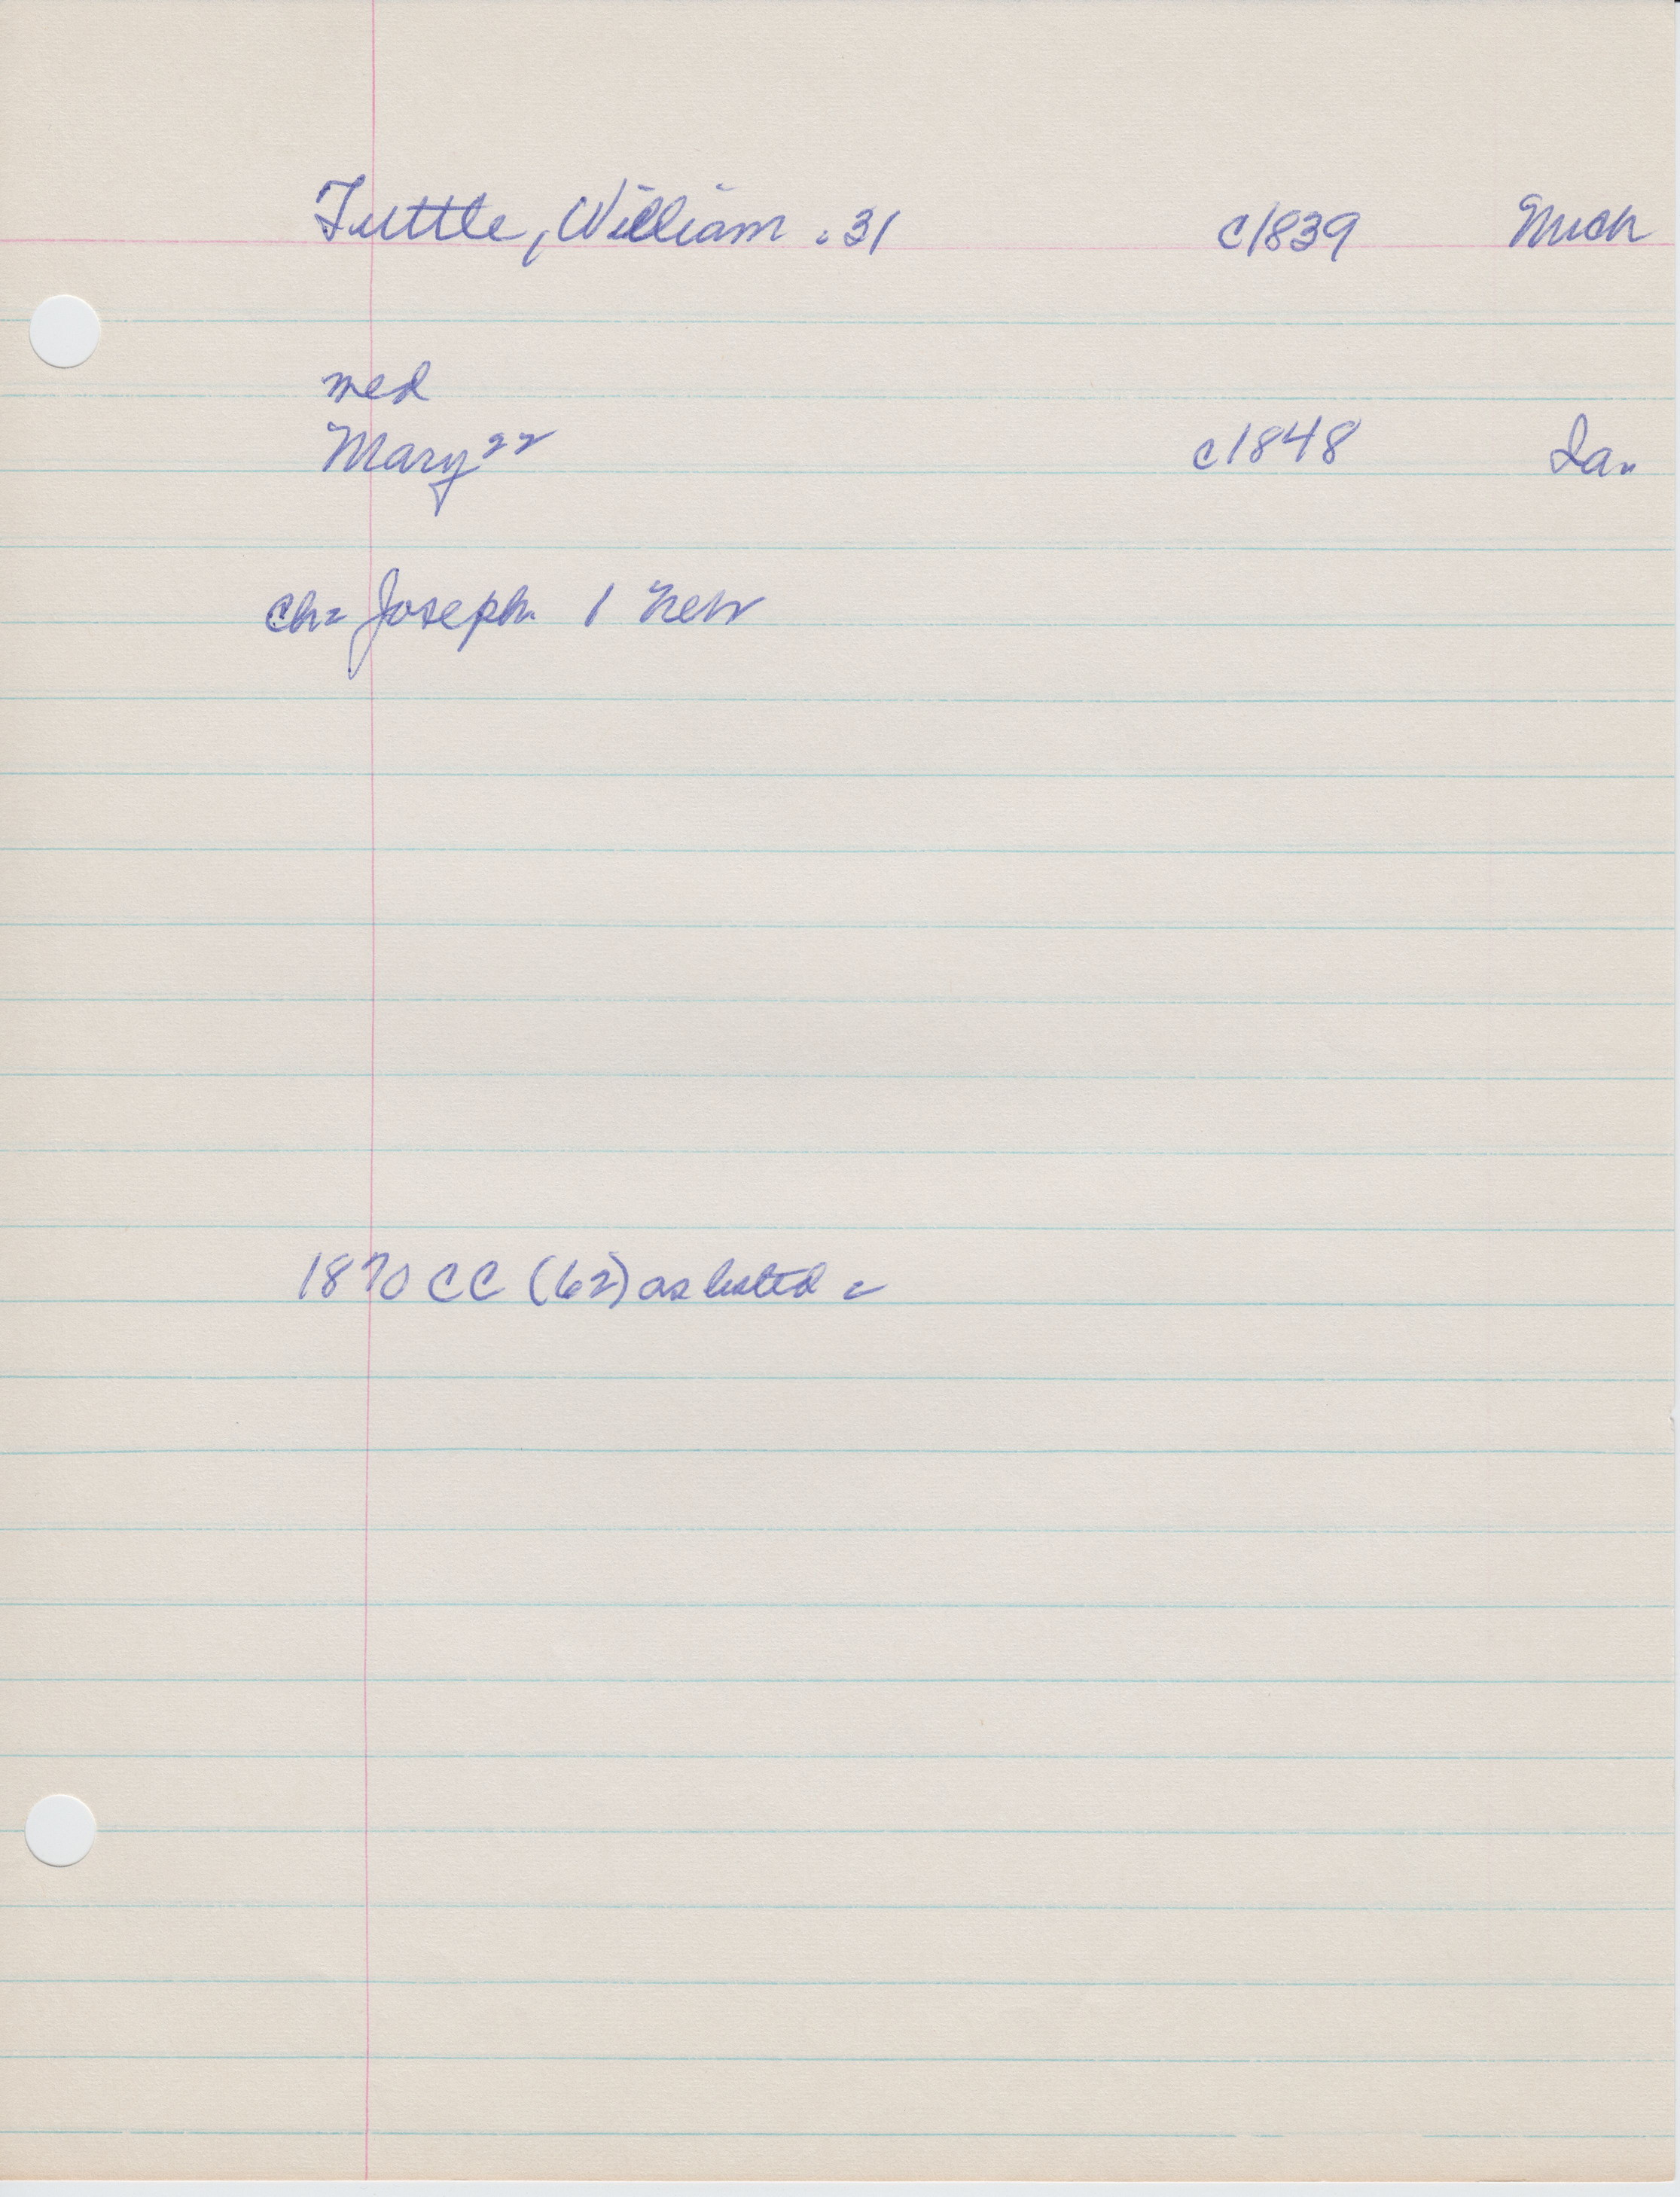 Tuttle, William . 31 c1839 Mich
med
Mary 22 c1848 Ia.
Ch= Joseph. 1 Nev
1870 CC (62) as listed =